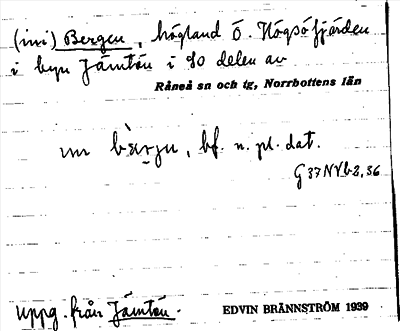 (ini) Bergen, högland Ö. Högsöfjärden
i byn Jämtön i SO delen av
Råneå sn och tg, Norrbottens län
bf. n. pl. dat.
G 37 NVb2,36
Uppg. från Jämtön.
EDVIN BRÄNNSTRÖM 1939